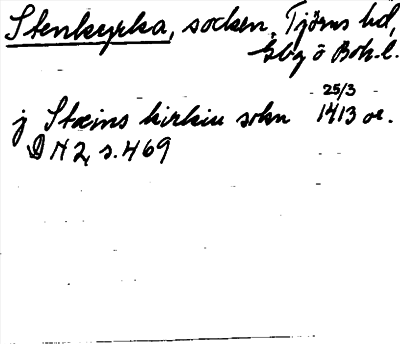 Stenkyrka, socken, Tjörns hd,
Gbg o Boh. l.
25/3
j Stæins kirkiu sokn 1413 or.
DN 2, s. 469